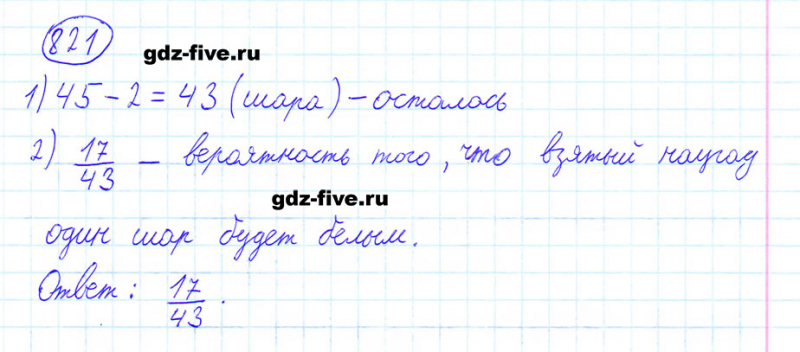 821
gdz-five.ru
1) 45 - 2 = 43 (шара) - осталось
2) 17/43 - вероятность того, что взятый наугад
gdz-five.ru
один шар будет белым.
Ответ: 17/43.